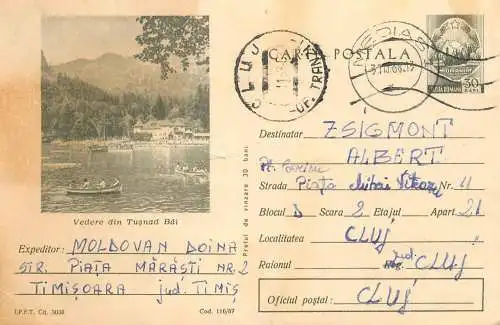 CARTE POSTALA
CLUJ
MEDIAS
POSTA ROMANA
BANI
Destinatar ZSIGMONT
ALBERT
Strada Piața Mihai Viteazu Nr. 11
Blocul D Scara 2 Etajul Apart. 21
Localitatea CLUJ
Raionul jud. CLUJ
Oficiul poștal: CLUJ
Prețul de vînzare 30 bani
Vedere din Tușnad Băi
Expeditor: MOLDOVAN DOINA
STR. PIAȚA MĂRĂȘTI NR. 2
TIMIȘOARA jud. TIMIȘ
I.P.F.T. Cd. 3030
Cod. 116/67